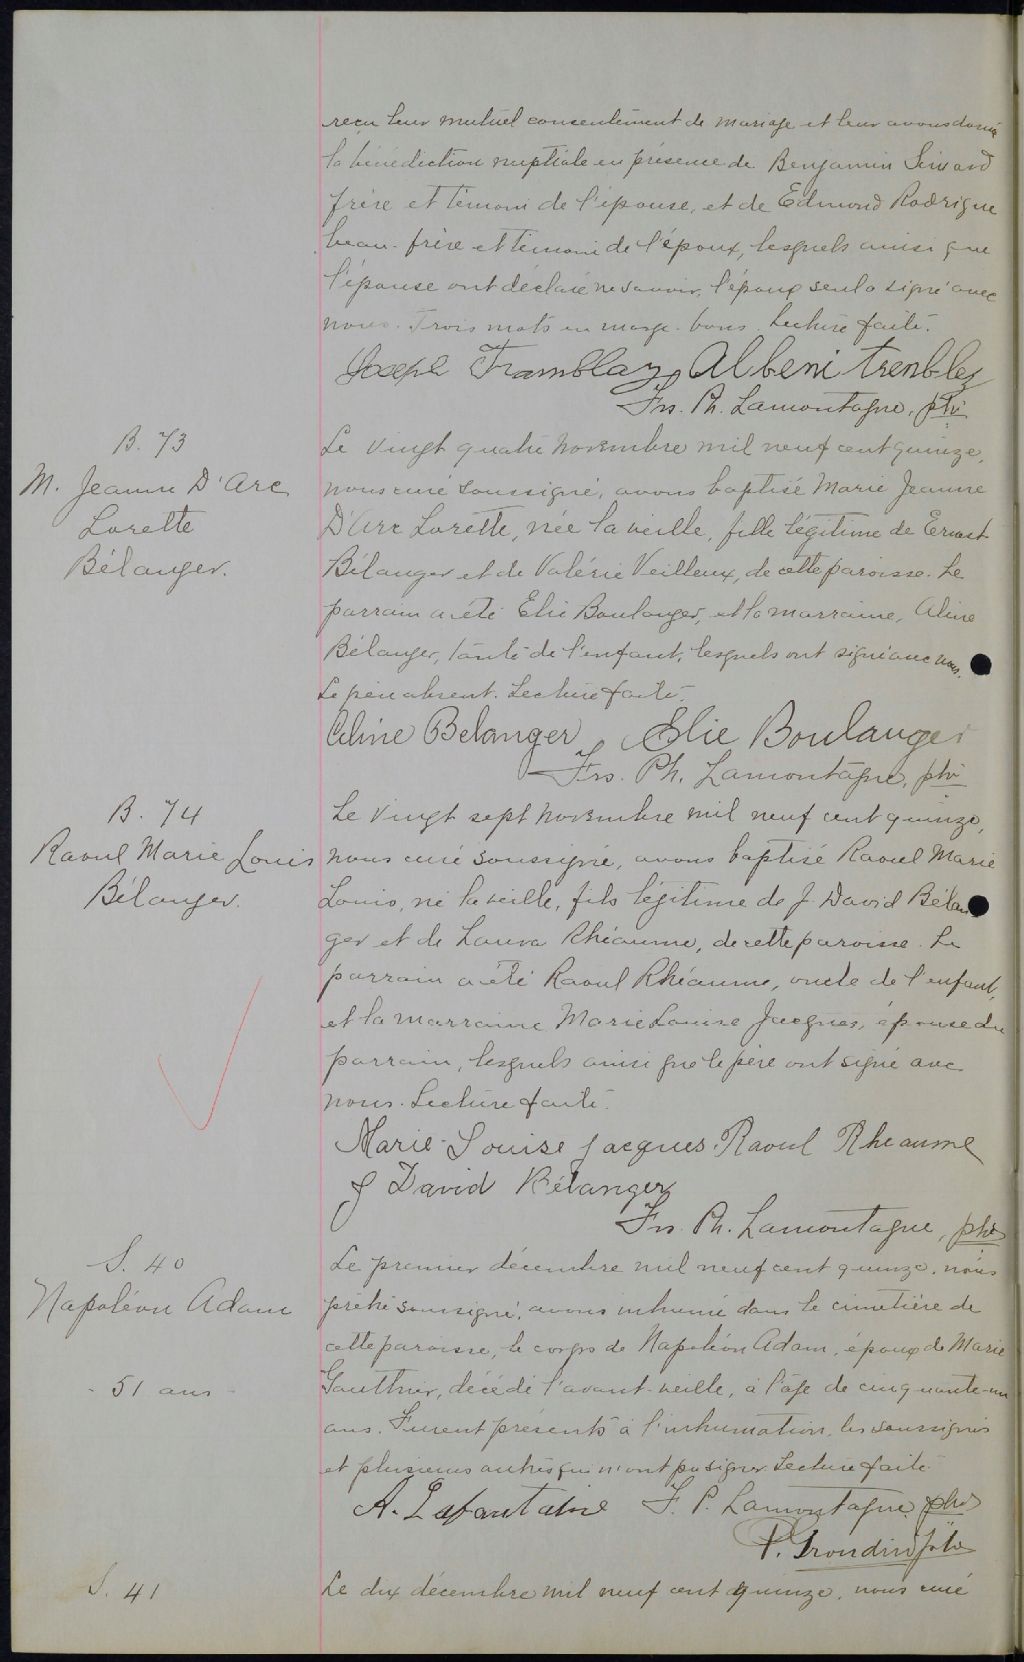 reçu leur mutuel consentement de mariage et leur avons donné
la bénédiction nuptiale en présence de Benjamin
frère et témoin de l'épouse, et de Edmond Rodrigue
beau-frère et témoin de l'époux, lesquels ainsi que
l'épouse ont déclaré ne savoir, l'époux seul a signé avec
nous. Trois mots en marge bons. Lecture faite.
Joseph Tramblay Albeni Trenbley
Frs. Ph. Lamontagne, ptr
B. 73
M. Jeanne D'Arc
Lorette
Bélanger.
Le vingt quatre novembre mil neuf cent quinze,
nous curé soussigné, avons baptisé Marie Jeanne
D'Arc Lorette, née la veille, fille légitime de Ernest
Bélanger et de Valérie Veilleux, de cette paroisse. Le
parrain a été Elie Boulanger, et la marraine, Aline
Bélanger, tante de l'enfant, lesquels ont signé avec nous.
Le père absent. Lecture faite.
Aline Belanger Elie Boulanger
Frs. Ph. Lamontagne, ptr
B. 74
Raoul Marie Louis
Bélanger.
Le vingt sept novembre mil neuf cent quinze,
nous curé soussigné, avons baptisé Raoul Marie
Louis, né la veille, fils légitime de J. David Bélan
ger et de Laura Rhéaume, de cette paroisse. Le
parrain a été Raoul Rhéaume, oncle de l'enfant,
et la marraine Marie Louise Jacques, épouse du
parrain, lesquels ainsi que le père ont signé avec
nous. Lecture faite.
Marie-Louise Jacques. Raoul Rheaume
J David Bélanger
Frs. Ph. Lamontagne, ptr
S. 40
Napoléon Adam
- 51 ans -
Le premier décembre mil neuf cent quinze, nous
prêtre soussigné, avons inhumé dans le cimetière de
cette paroisse, le corps de Napoléon Adam, époux de Marie
Gauthier, décédé l'avant-veille, à l'âge de cinquante-un
ans. Furent présents à l'inhumation, les soussignés
et plusieurs autres qui n'ont pu signer. Lecture faite.
A. Lafontaine F. P. Lamontagne, ptr
P. Grondin ptr
S. 41
Le dix décembre mil neuf cent quinze, nous curé